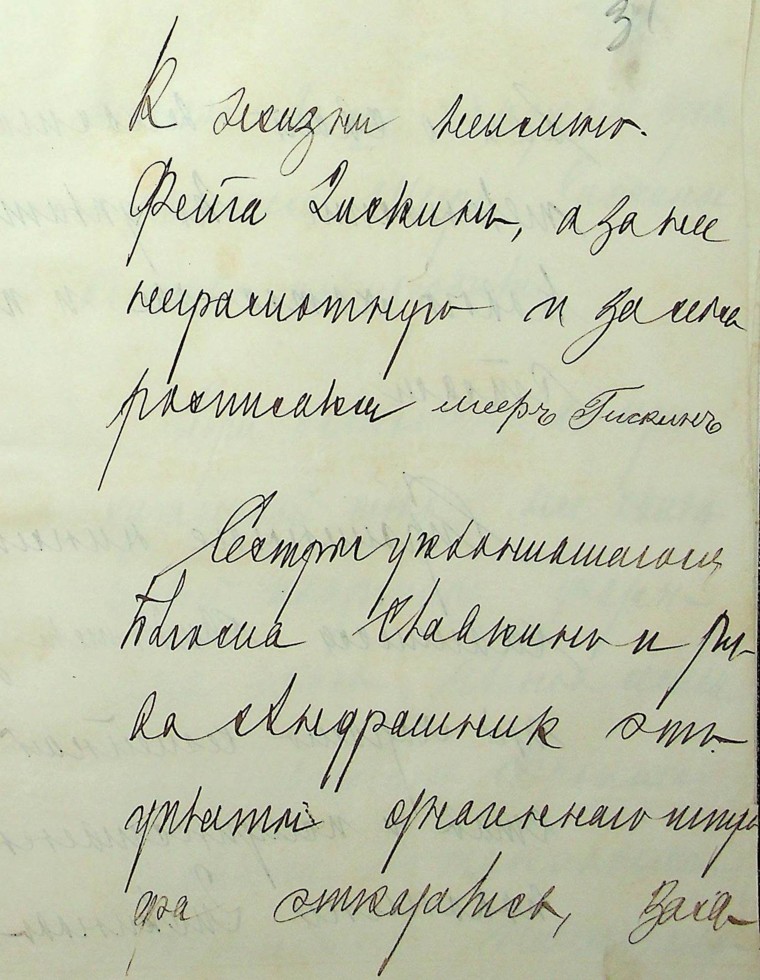 31
К жизни неимею.
Фейга Гискинъ, а за нее
неграмотную и за себя
росписался Мееръ Гискинъ
Сестры уклонившагося
Блюма Славкинъ и Ри-
ва Андрашник отъ
уплаты означеннаго штра
фа отказались, зака-